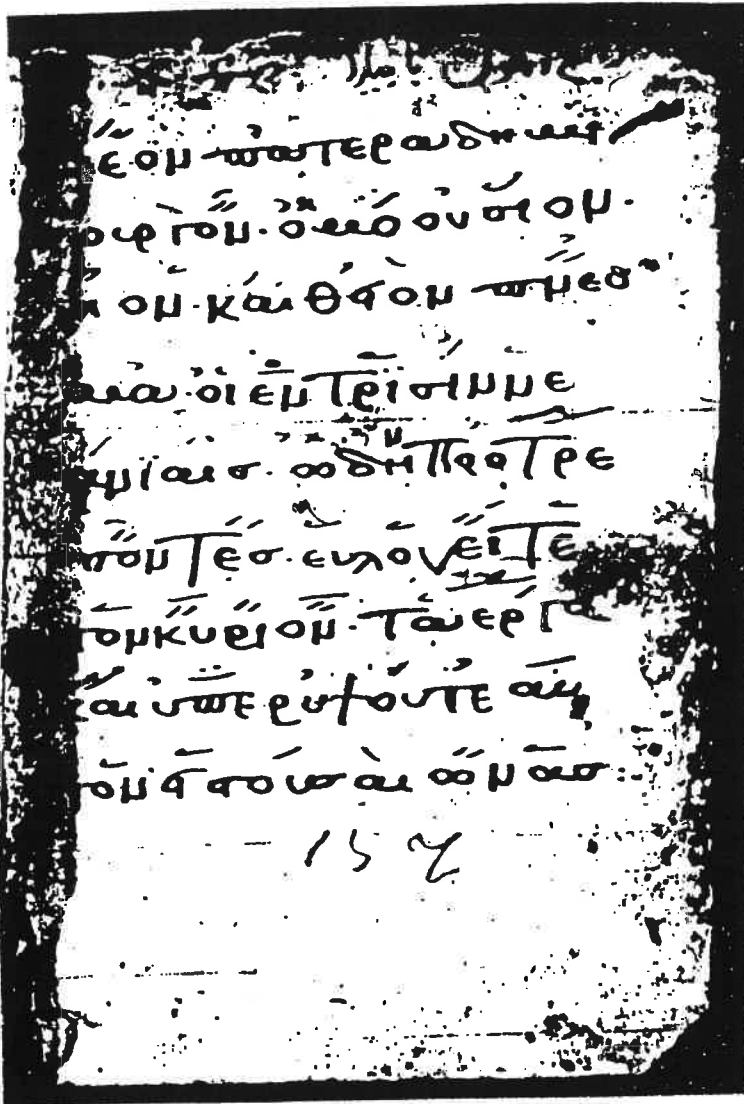 εον πατερα δημι
ουργον · ομοουσιον ·
ον · και θειον πνευ
μα · οι εν τρισιν
ωδη προτρε
ποντες · ευλογειτε
τον κυριον · τα εργα
και υπερυψουτε αυ
τον εις τους αιωνας :
157